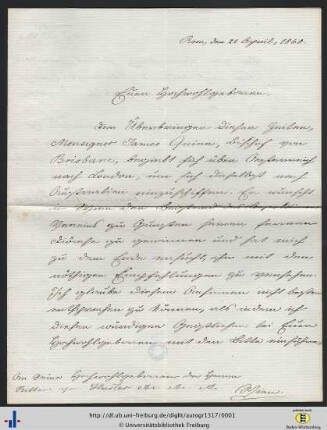 Rom, den 21 April, 1860.
Euer Hochwohlgeboren.
Der Überbringer dieser Zeilen,
Monsignor James Quinn, Bischof von
Brisbane, begibt sich über Oesterreich
nach London, um sich daselbst nach
Australien einzuschiffen. Er wünscht
in Wien den Beistand des
Vereins zu Gunsten seiner fernen
Diöcese zu gewinnen und hat mich
zu dem Ende ersucht, ihn mit den
nöthigen Empfehlungen zu versehen.
Ich glaube diesem Ansinnen nicht besser
entsprechen zu können, als indem ich
diesen würdigen Geistlichen bei Euer
Hochwohlgeboren mit der Bitte einführe,
An Seine Hochwohlgeboren den Herrn
Ritter
http://dl.ub.uni-freiburg.de/diglit/autogr1317/0001
© Universitätsbibliothek Freiburg
Baden-Württemberg